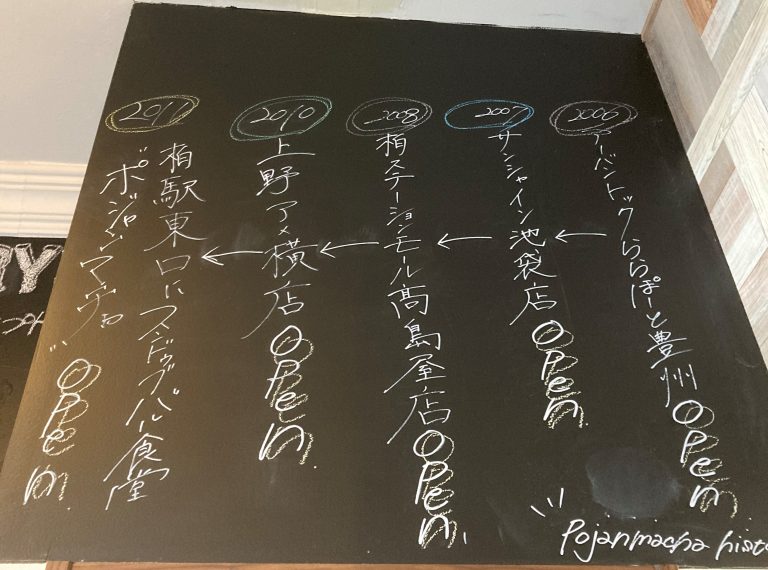 2006
アーバンドックららぽーと豊洲 open
2007
サンシャイン池袋店 open
2008
柏ステーションモール高島屋店 open
2010
上野アメ横店 open
2011
柏駅東口にスンドゥブバル食堂
"ポジャンマチャ" open
Pojanmacha histo